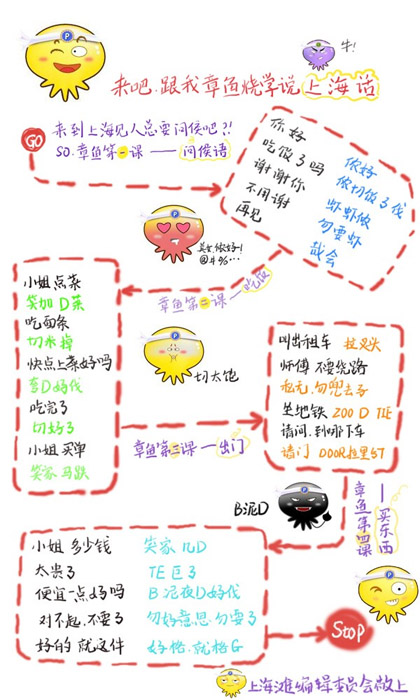 牛!
来吧.跟我章鱼烧学说上海话
GO
来到上海见人总要问侯吧?!
SO.章鱼第一课——问侯语
你好
吃饭了吗
谢谢你
不用谢
再见
侬好
侬切饭了伐
虾虾侬
勿要虾
哉会
美女侬好!
@#%…
章鱼第二课—吃饭
小姐点菜
笑加D菜
吃面条
切米掉
快点上菜好吗
奎D好伐
吃完了
切好了
小姐买单
笑家马跌
切太饱
章鱼第三课—出门
叫出租车 拉叉头
师傅 不要绕路
勿兜去子
坐地铁 ZOO D TIE
请问.到哪下车
B泥D
章鱼第四课
——买东西
小姐 多少钱 笑家 几D
太贵了 TE巨了
便宜一点好吗 B泥夜D好伐
对不起.不要了 勿好意思.勿要了
好的 就这件 好格.就格G
Stop
上海滩编辑委员会敬上